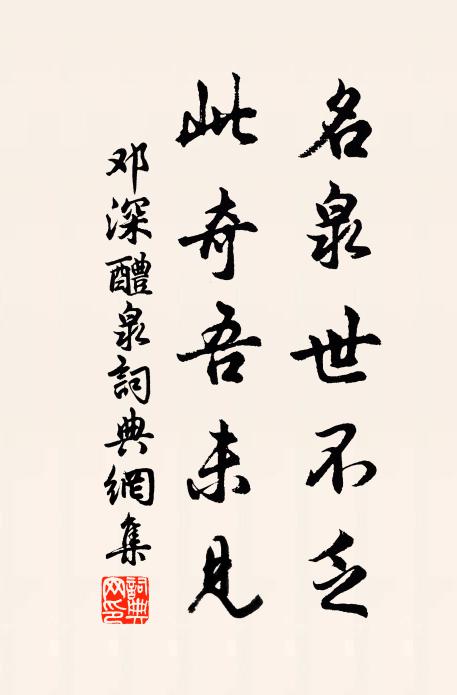 名泉世不乏
此奇吾未見
邓深醴泉詞典網集
詞典網印